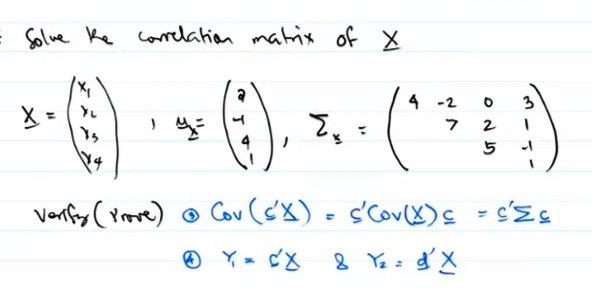 : Solve the correlation matrix of X
X = (x₁ x₂ x₃ x₄) , μₓ = (2 -1 4 1) , Σₓ = (4 -2 0 3
7 2 1
5 -1
1)
Verify (Prove) ③ Cov (c'X) = c'Cov(X) c = c'Σ c
④ Y₁ = c'X & Y₂ = d'X